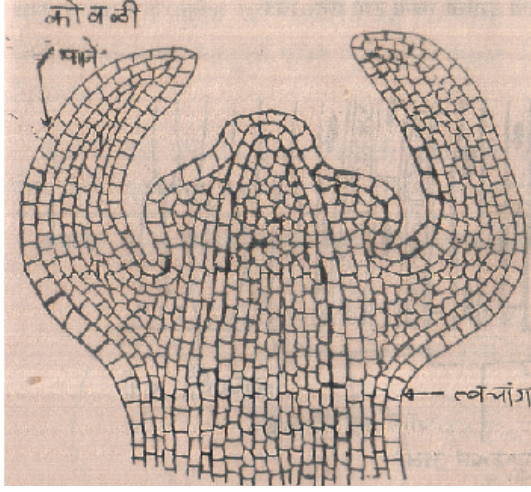 कोवळी
पाने
त्वचांग